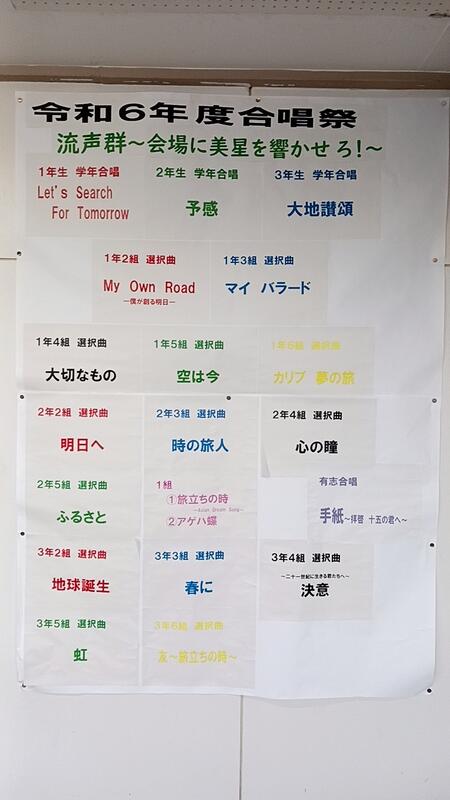 令和6年度合唱祭
流声群～会場に美星を響かせろ！～
1年生 学年合唱
Let's Search
For Tomorrow
2年生 学年合唱
予感
3年生 学年合唱
大地讃頌
1年2組 選択曲
My Own Road
－僕が創る明日－
1年3組 選択曲
マイ バラード
1年4組 選択曲
大切なもの
1年5組 選択曲
空は今
1年6組 選択曲
カリブ 夢の旅
2年2組 選択曲
明日へ
2年3組 選択曲
時の旅人
2年4組 選択曲
心の瞳
2年5組 選択曲
ふるさと
1組
①旅立ちの時
～Asian Dream Song～
②アゲハ蝶
有志合唱
手紙～拝啓 十五の君へ～
3年2組 選択曲
地球誕生
3年3組 選択曲
春に
3年4組 選択曲
～二十一世紀に生きる君たちへ～
決意
3年5組 選択曲
虹
3年6組 選択曲
友～旅立ちの時～